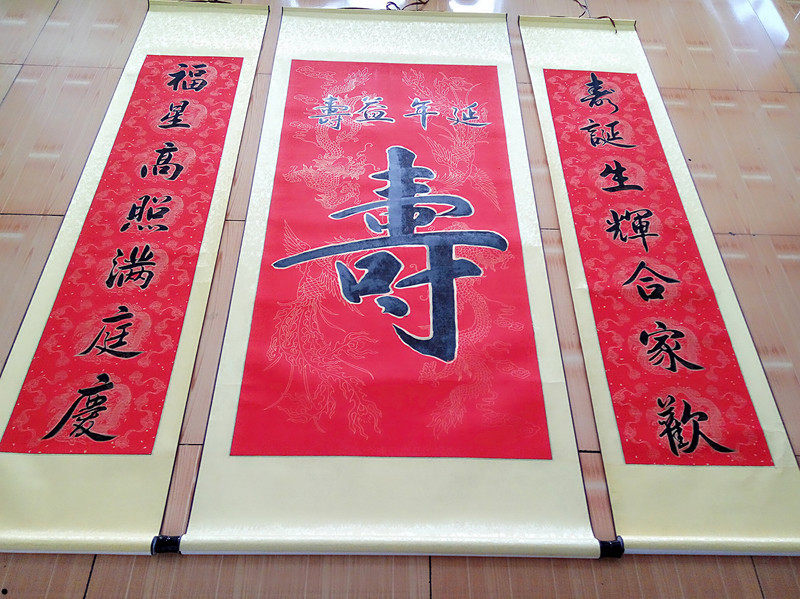 寿誕生輝合家歡
延年益壽
壽
福星高照满庭慶